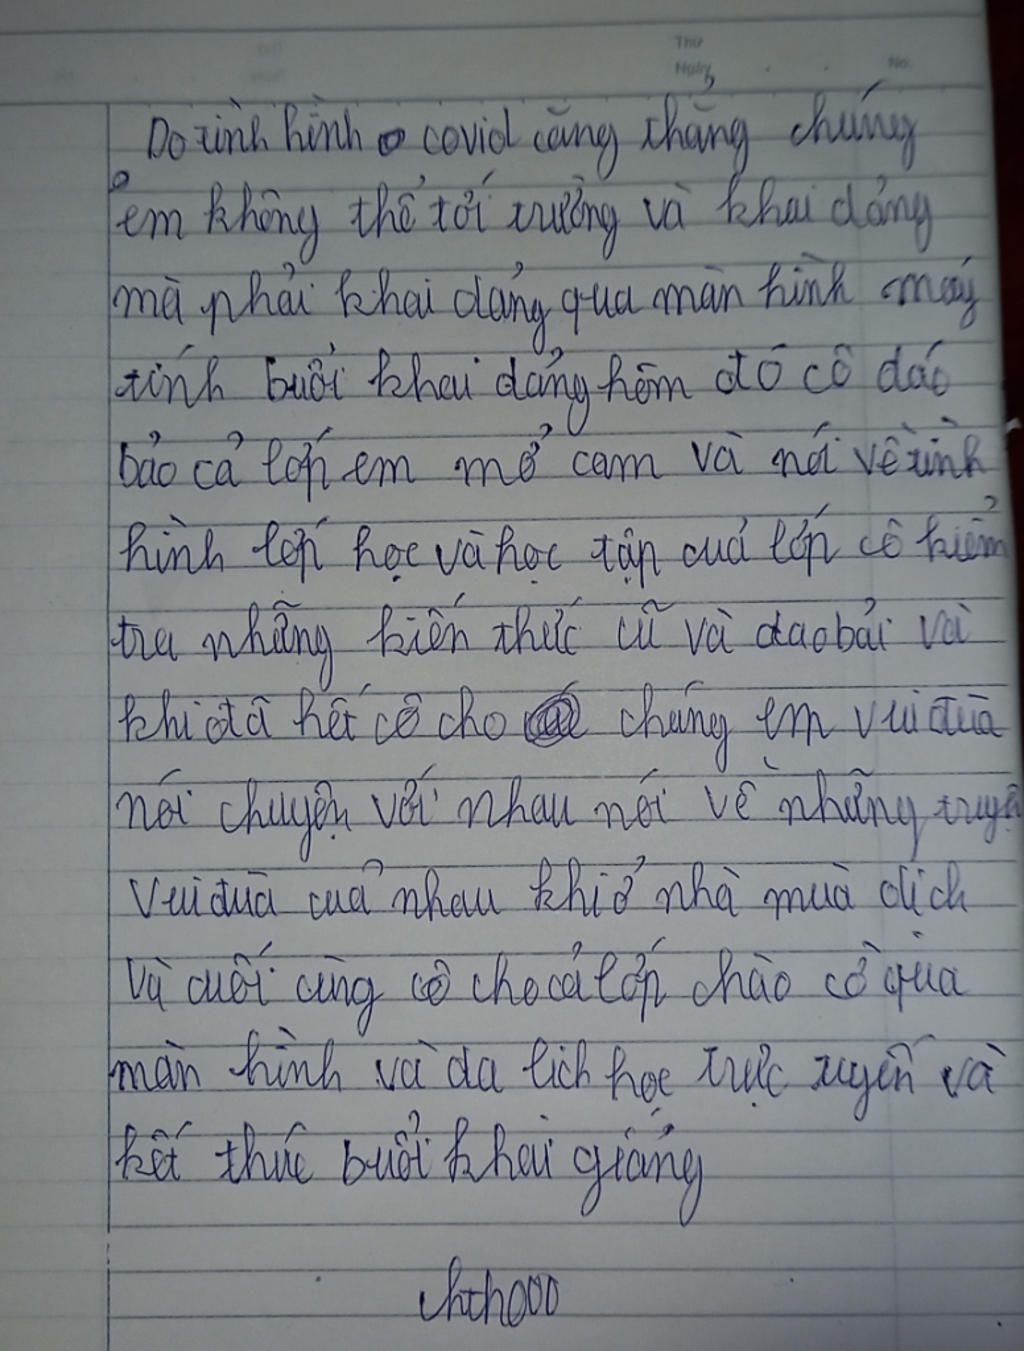 Thứ
Ngày
No.
Do tình hình covid căng thẳng chúng
em không thể tới trường và khai dảng
mà phải khai dảng qua màn hình máy
tính buổi khai dảng hôm đó cô dáo
bảo cả lớp em mở cam và nói về tình
hình lớp học và học tập cuả lớp cô kiểm
tra những kiến thức cũ và dao bài và
khi đã hết cô cho chúng em vui đuà
nói chuyện với nhau nói về những truyện
vui đuà cuả nhau khi ở nhà muà dịch
và cuối cùng cô cho cả lớp chào cờ qua
màn hình và da lich học trực tuyến và
kết thúc buổi khai giảng